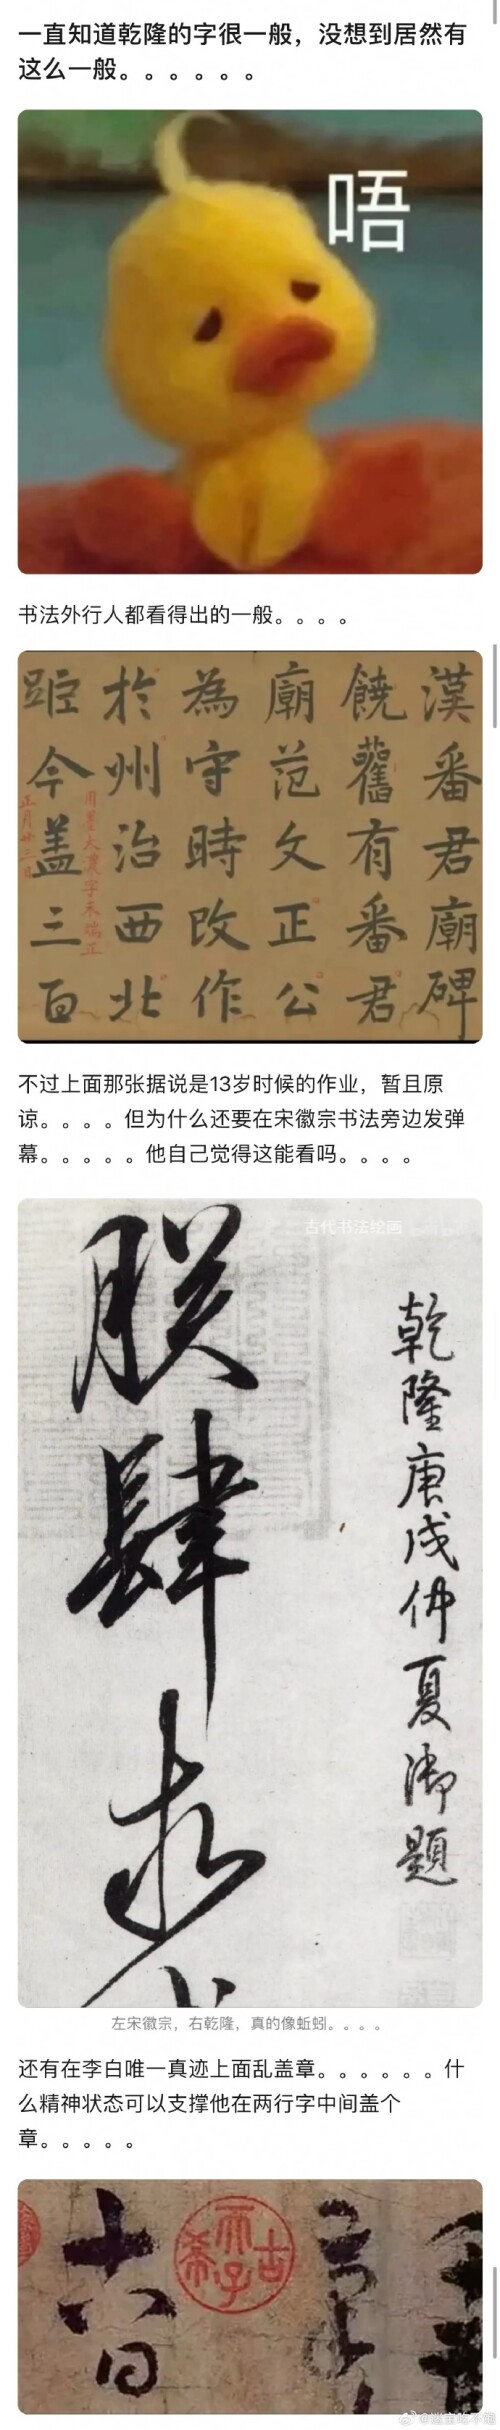 一直知道乾隆的字很一般，没想到居然有
这么一般。。。。。。
唔
书法外行人都看得出的一般。。。。
漢番君廟碑
饒舊有番君
廟范文正公
為守時改作
於州治西北
距今蓋三百
用墨太濃字未端正
正月廿三日
不过上面那张据说是13岁时候的作业，暂且原
谅。。。。但为什么还要在宋徽宗书法旁边发弹
幕。。。。。他自己觉得这能看吗。。。。
古代书法绘画
乾隆庚戌仲夏御題
朕肆求
左宋徽宗，右乾隆，真的像蚯蚓。。。。
还有在李白唯一真迹上面乱盖章。。。。。。什
么精神状态可以支撑他在两行字中间盖个
章。。。。。
古希天子
十八日